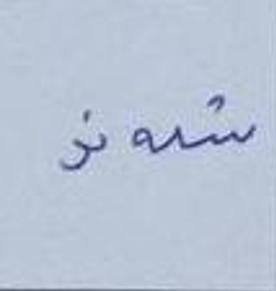 شله نو